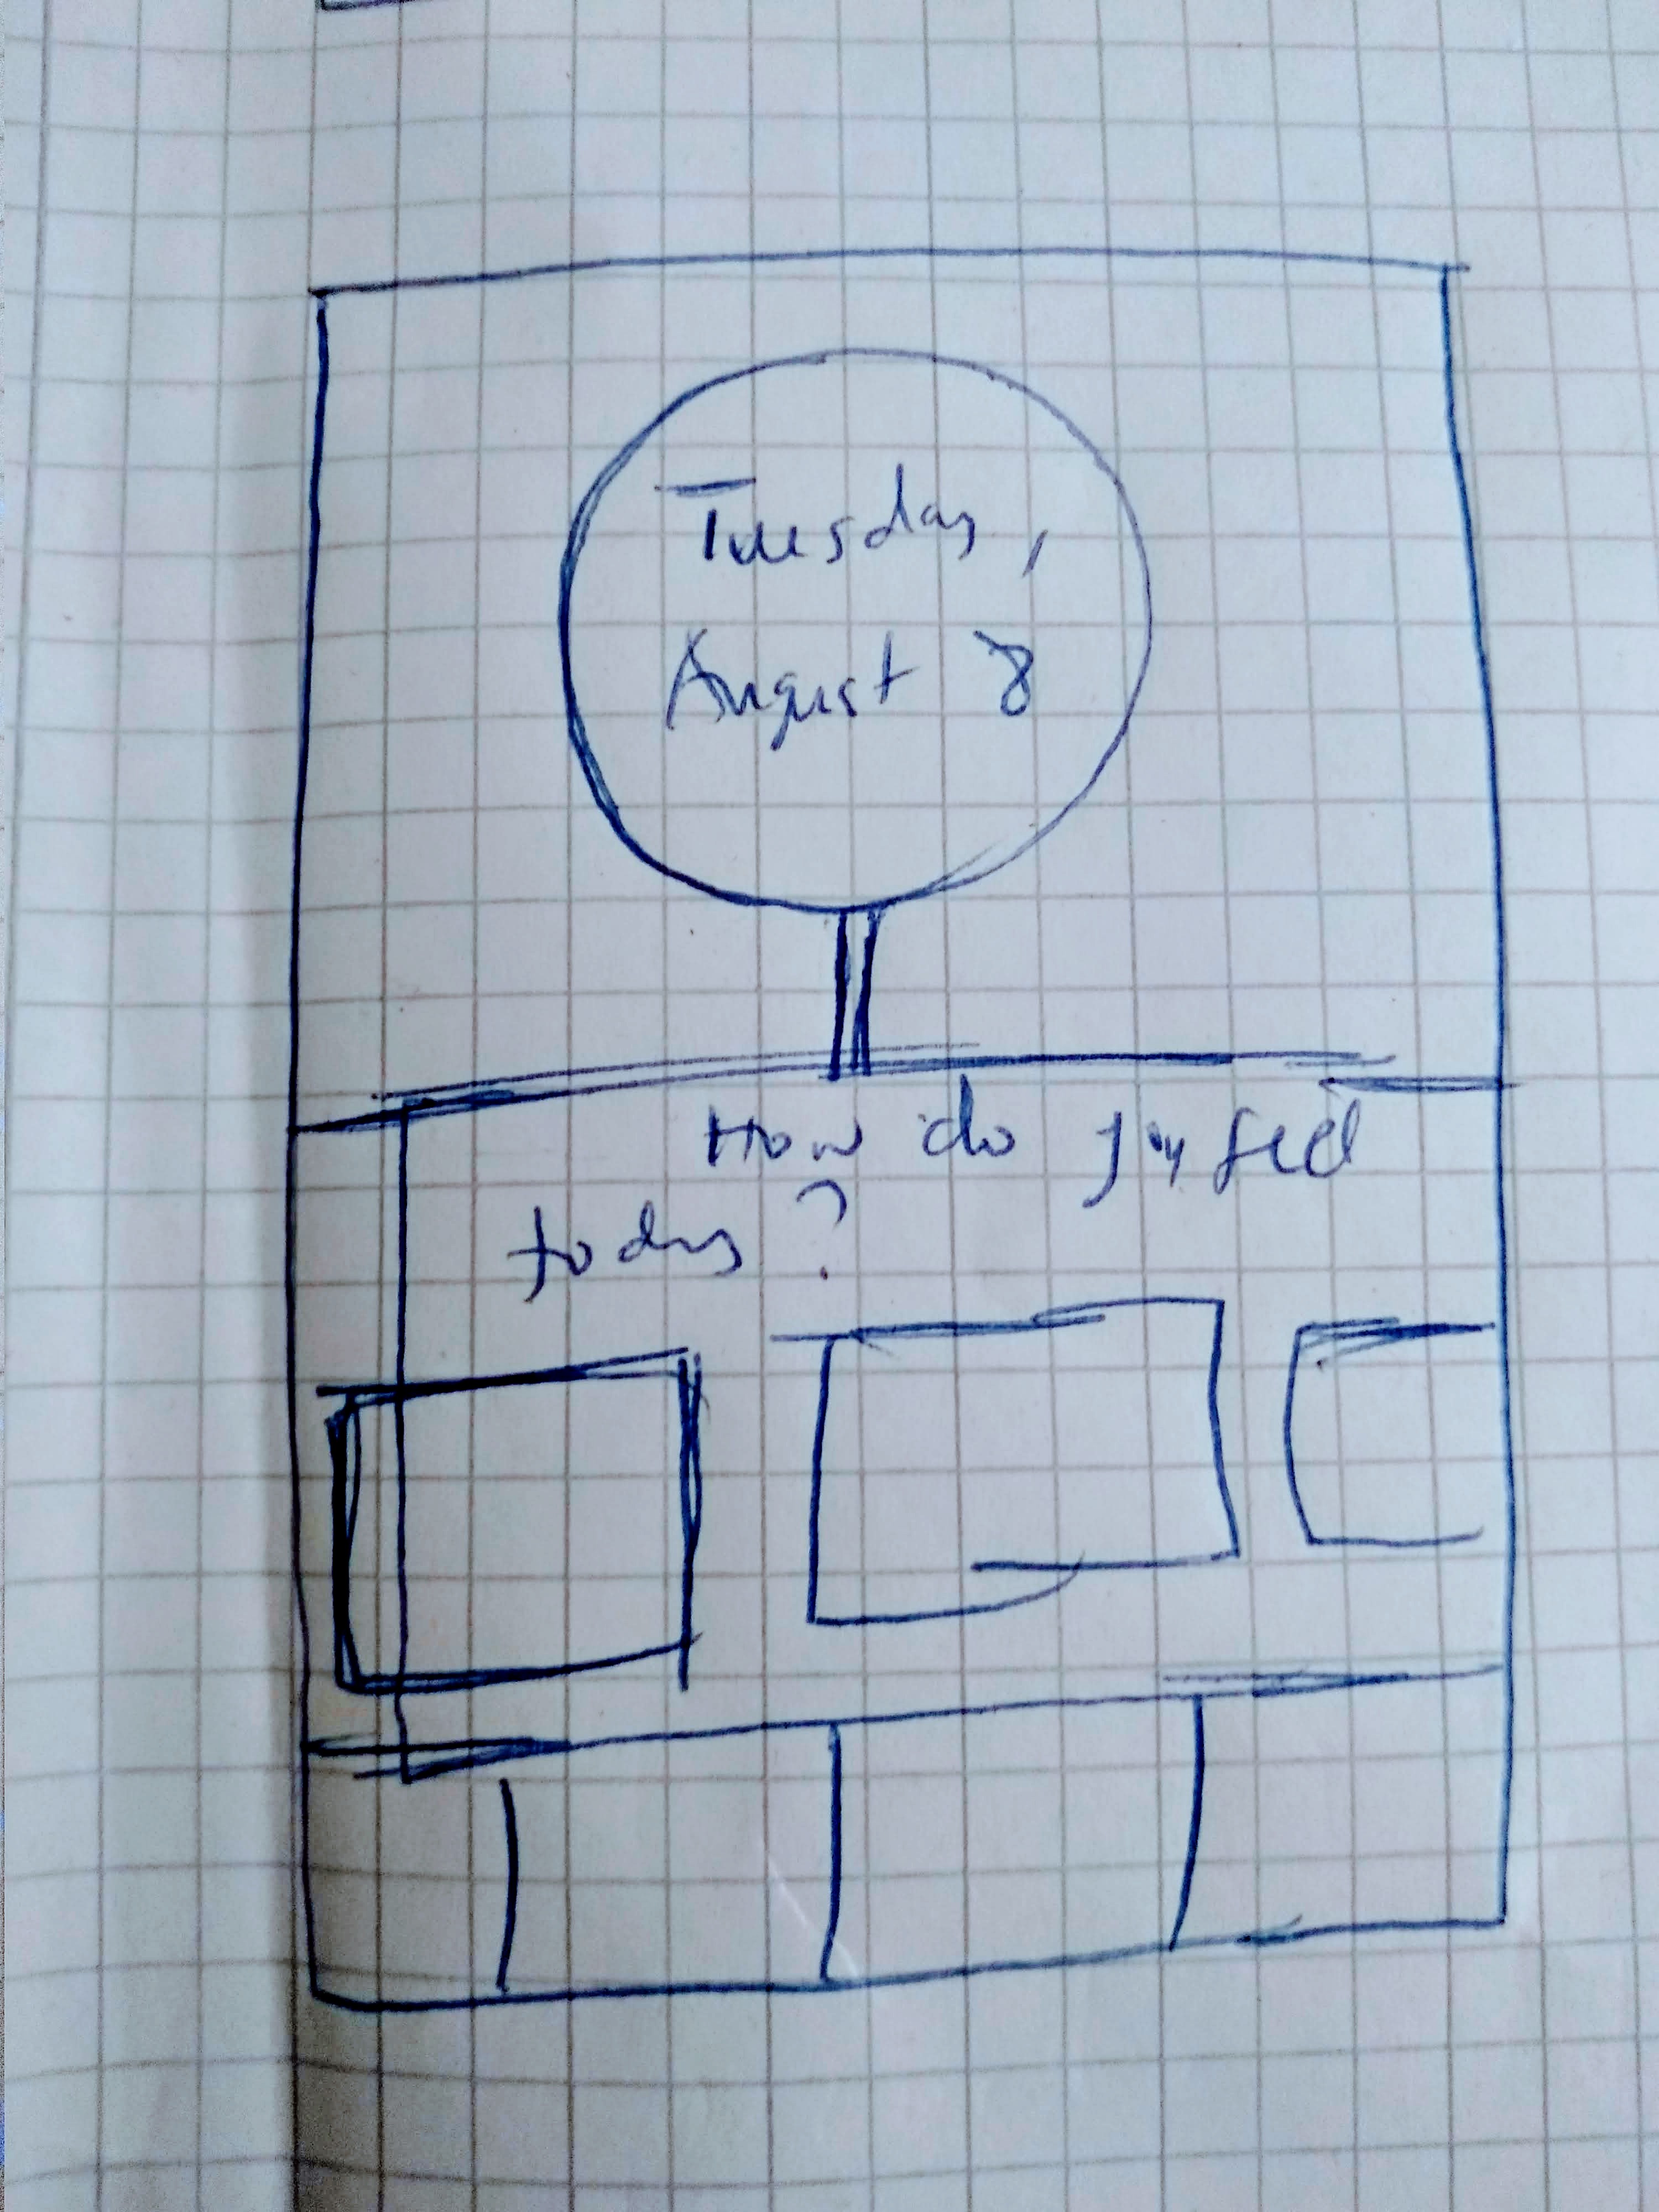 Tuesday,
August 8
How do you feel
today?